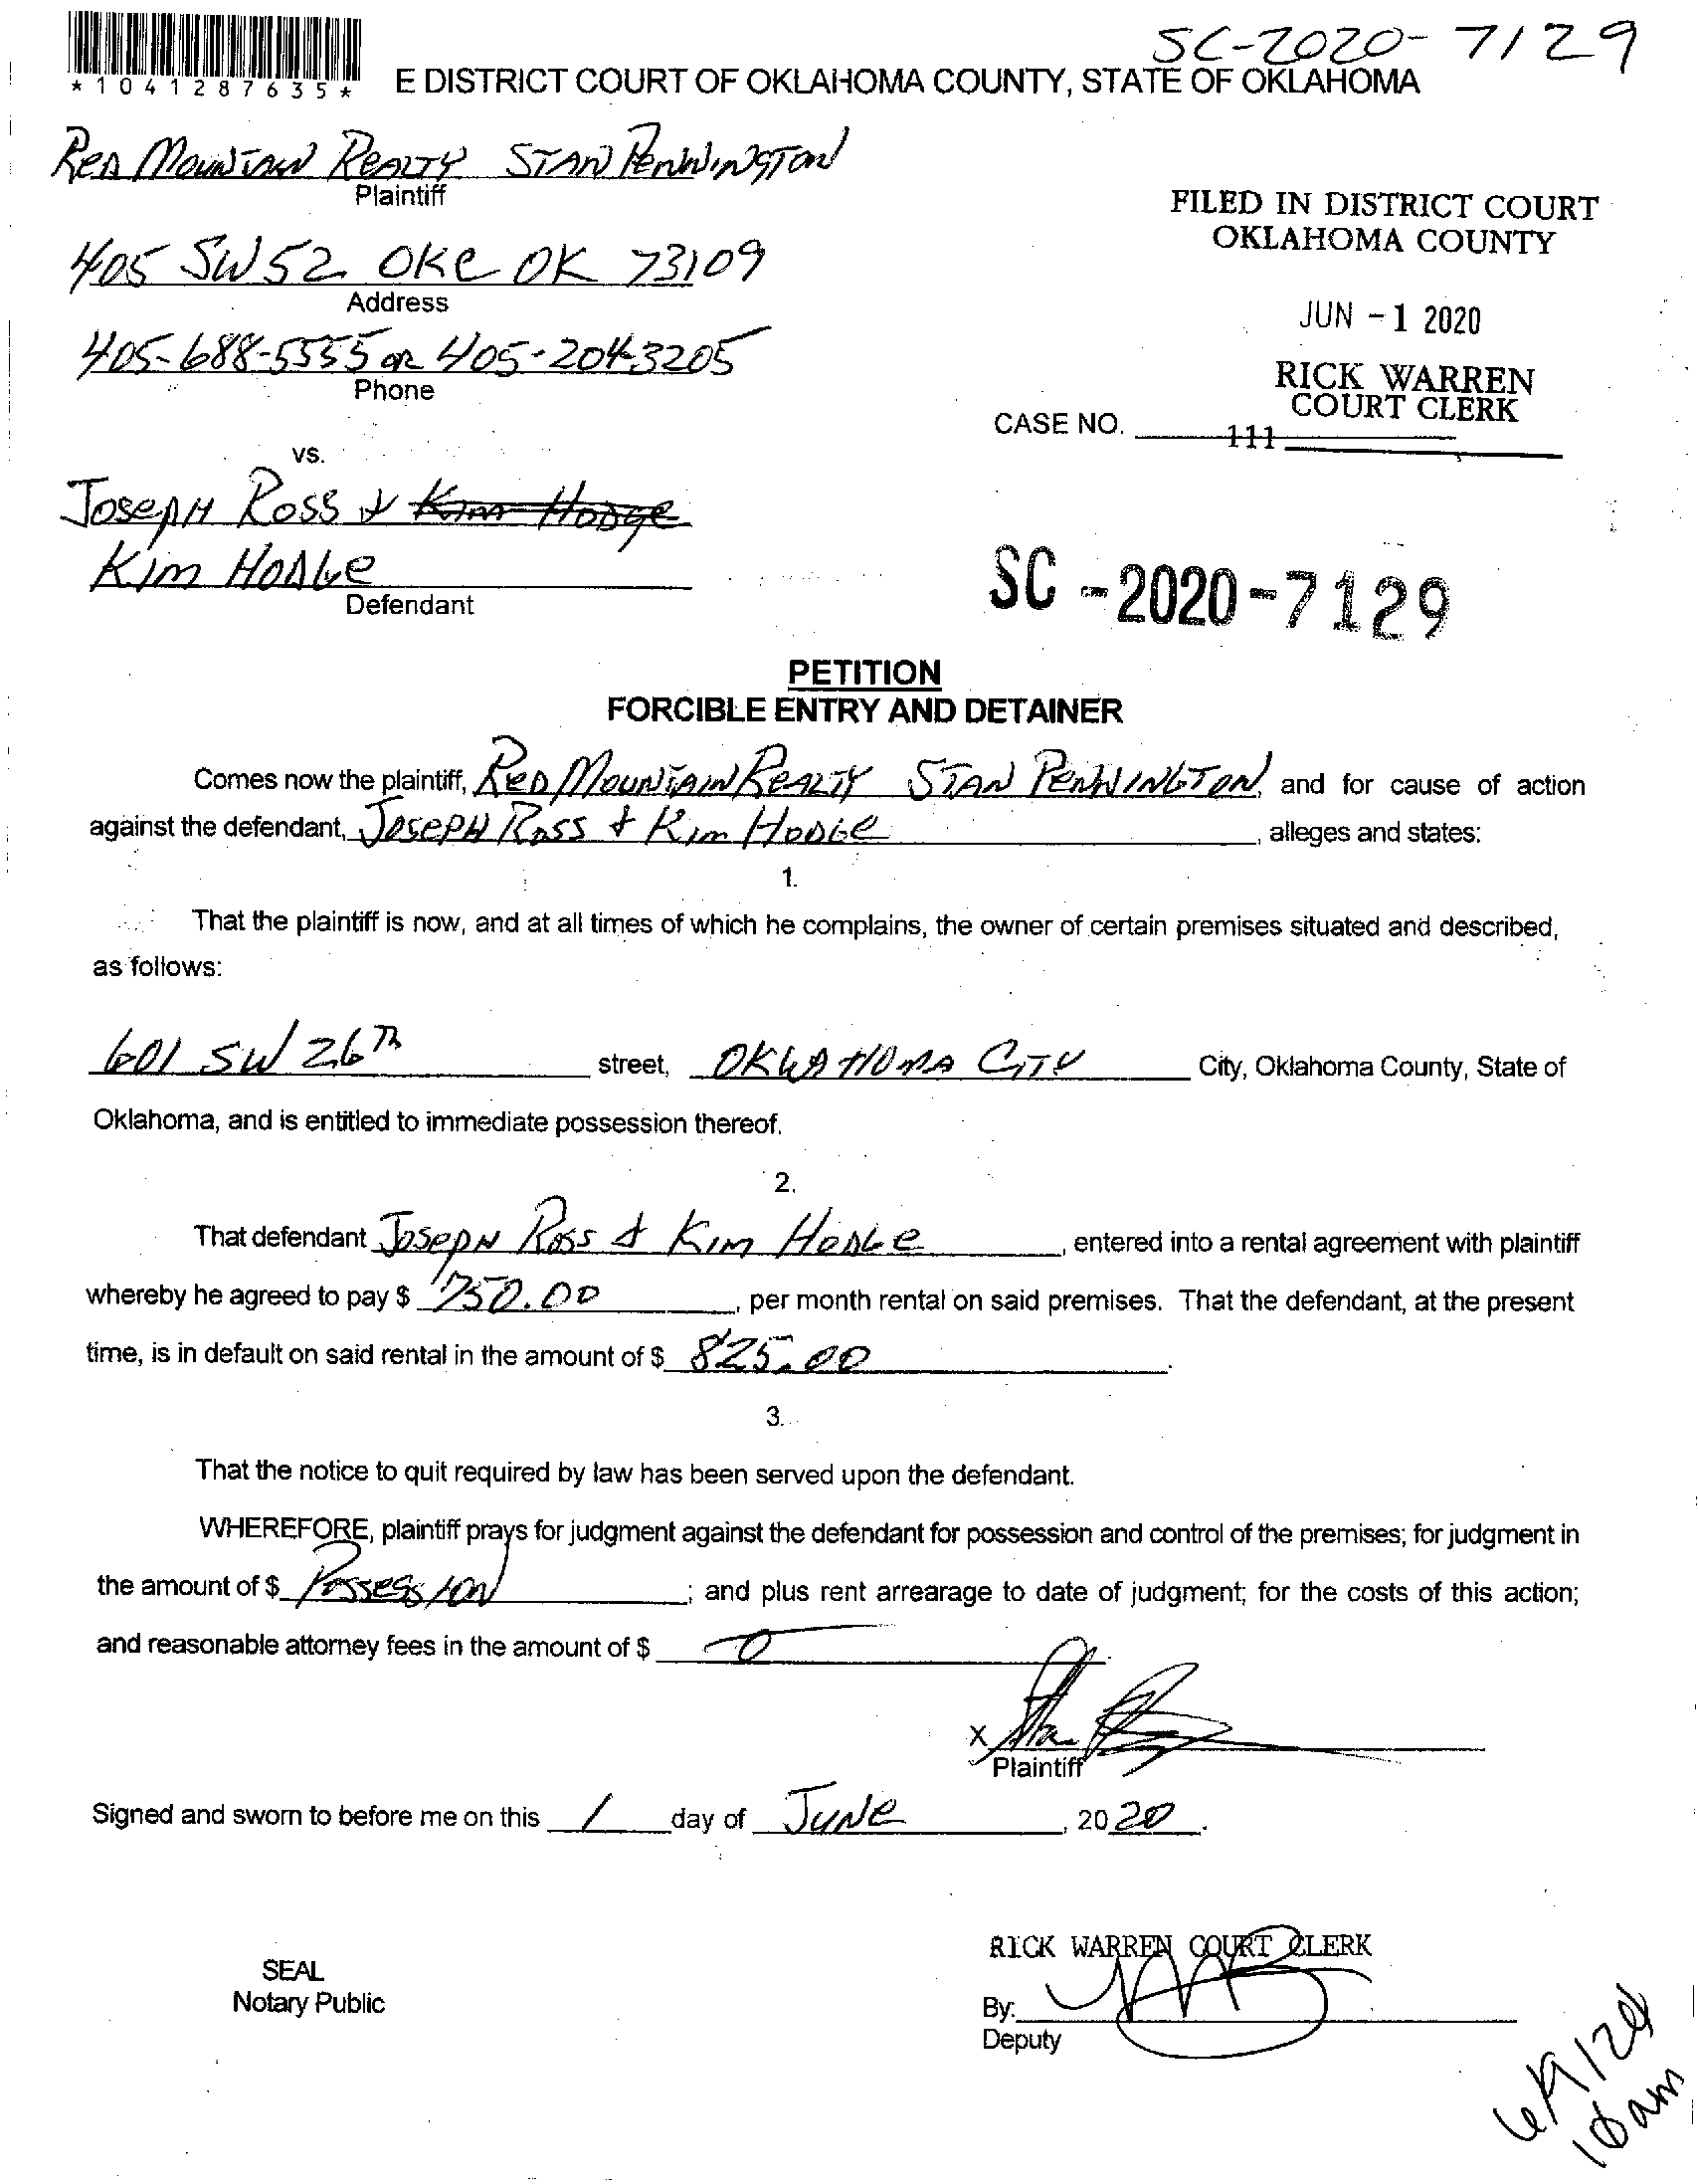 SC-2020-7129
*1041287635*
E DISTRICT COURT OF OKLAHOMA COUNTY, STATE OF OKLAHOMA
Red Mountain Realty Stan Pennington
Plaintiff
405 SW 52 OKC OK 73109
Address
405-688-5555 or 405-204-3205
Phone
FILED IN DISTRICT COURT
OKLAHOMA COUNTY
JUN -1 2020
RICK WARREN
COURT CLERK
CASE NO.
111
vs.
Joseph Ross & Kim Hodge
Kim Hodge
Defendant
SC-2020-7129
PETITION
FORCIBLE ENTRY AND DETAINER
Comes now the plaintiff, Red Mountain Realty Stan Pennington, and for cause of action
against the defendant, Joseph Ross & Kim Hodge, alleges and states:
1.
That the plaintiff is now, and at all times of which he complains, the owner of certain premises situated and described,
as follows:
601 SW 26th street, Oklahoma City City, Oklahoma County, State of
Oklahoma, and is entitled to immediate possession thereof.
2.
That defendant Joseph Ross & Kim Hodge, entered into a rental agreement with plaintiff
whereby he agreed to pay $ 750.00, per month rental on said premises. That the defendant, at the present
time, is in default on said rental in the amount of $ 825.00.
3.
That the notice to quit required by law has been served upon the defendant.
WHEREFORE, plaintiff prays for judgment against the defendant for possession and control of the premises; for judgment in
the amount of $ Possession; and plus rent arrearage to date of judgment; for the costs of this action;
and reasonable attorney fees in the amount of $ 0.
X
Plaintiff
Signed and sworn to before me on this 1 day of June, 2020.
RICK WARREN COURT CLERK
SEAL
Notary Public
By:
Deputy
10am